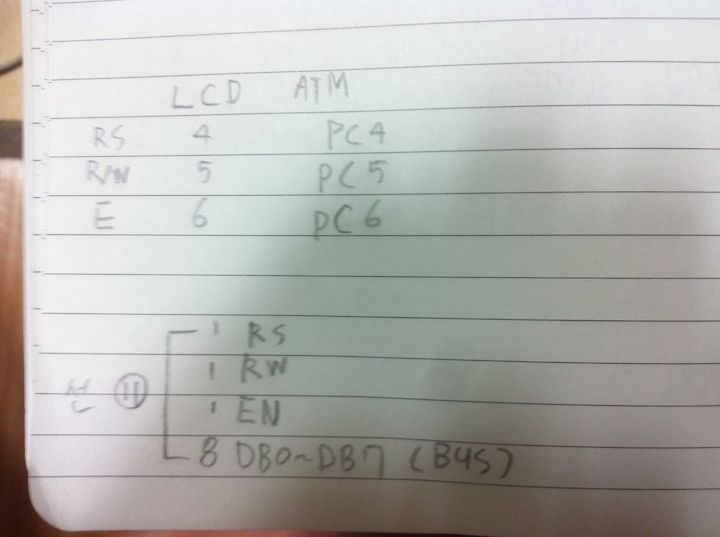 LCD ATM
RS 4 PC4
R/W 5 PC5
E 6 PC6
1 RS
1 RW
선 ⑪ 1 EN
8 DB0~DB7 (BUS)